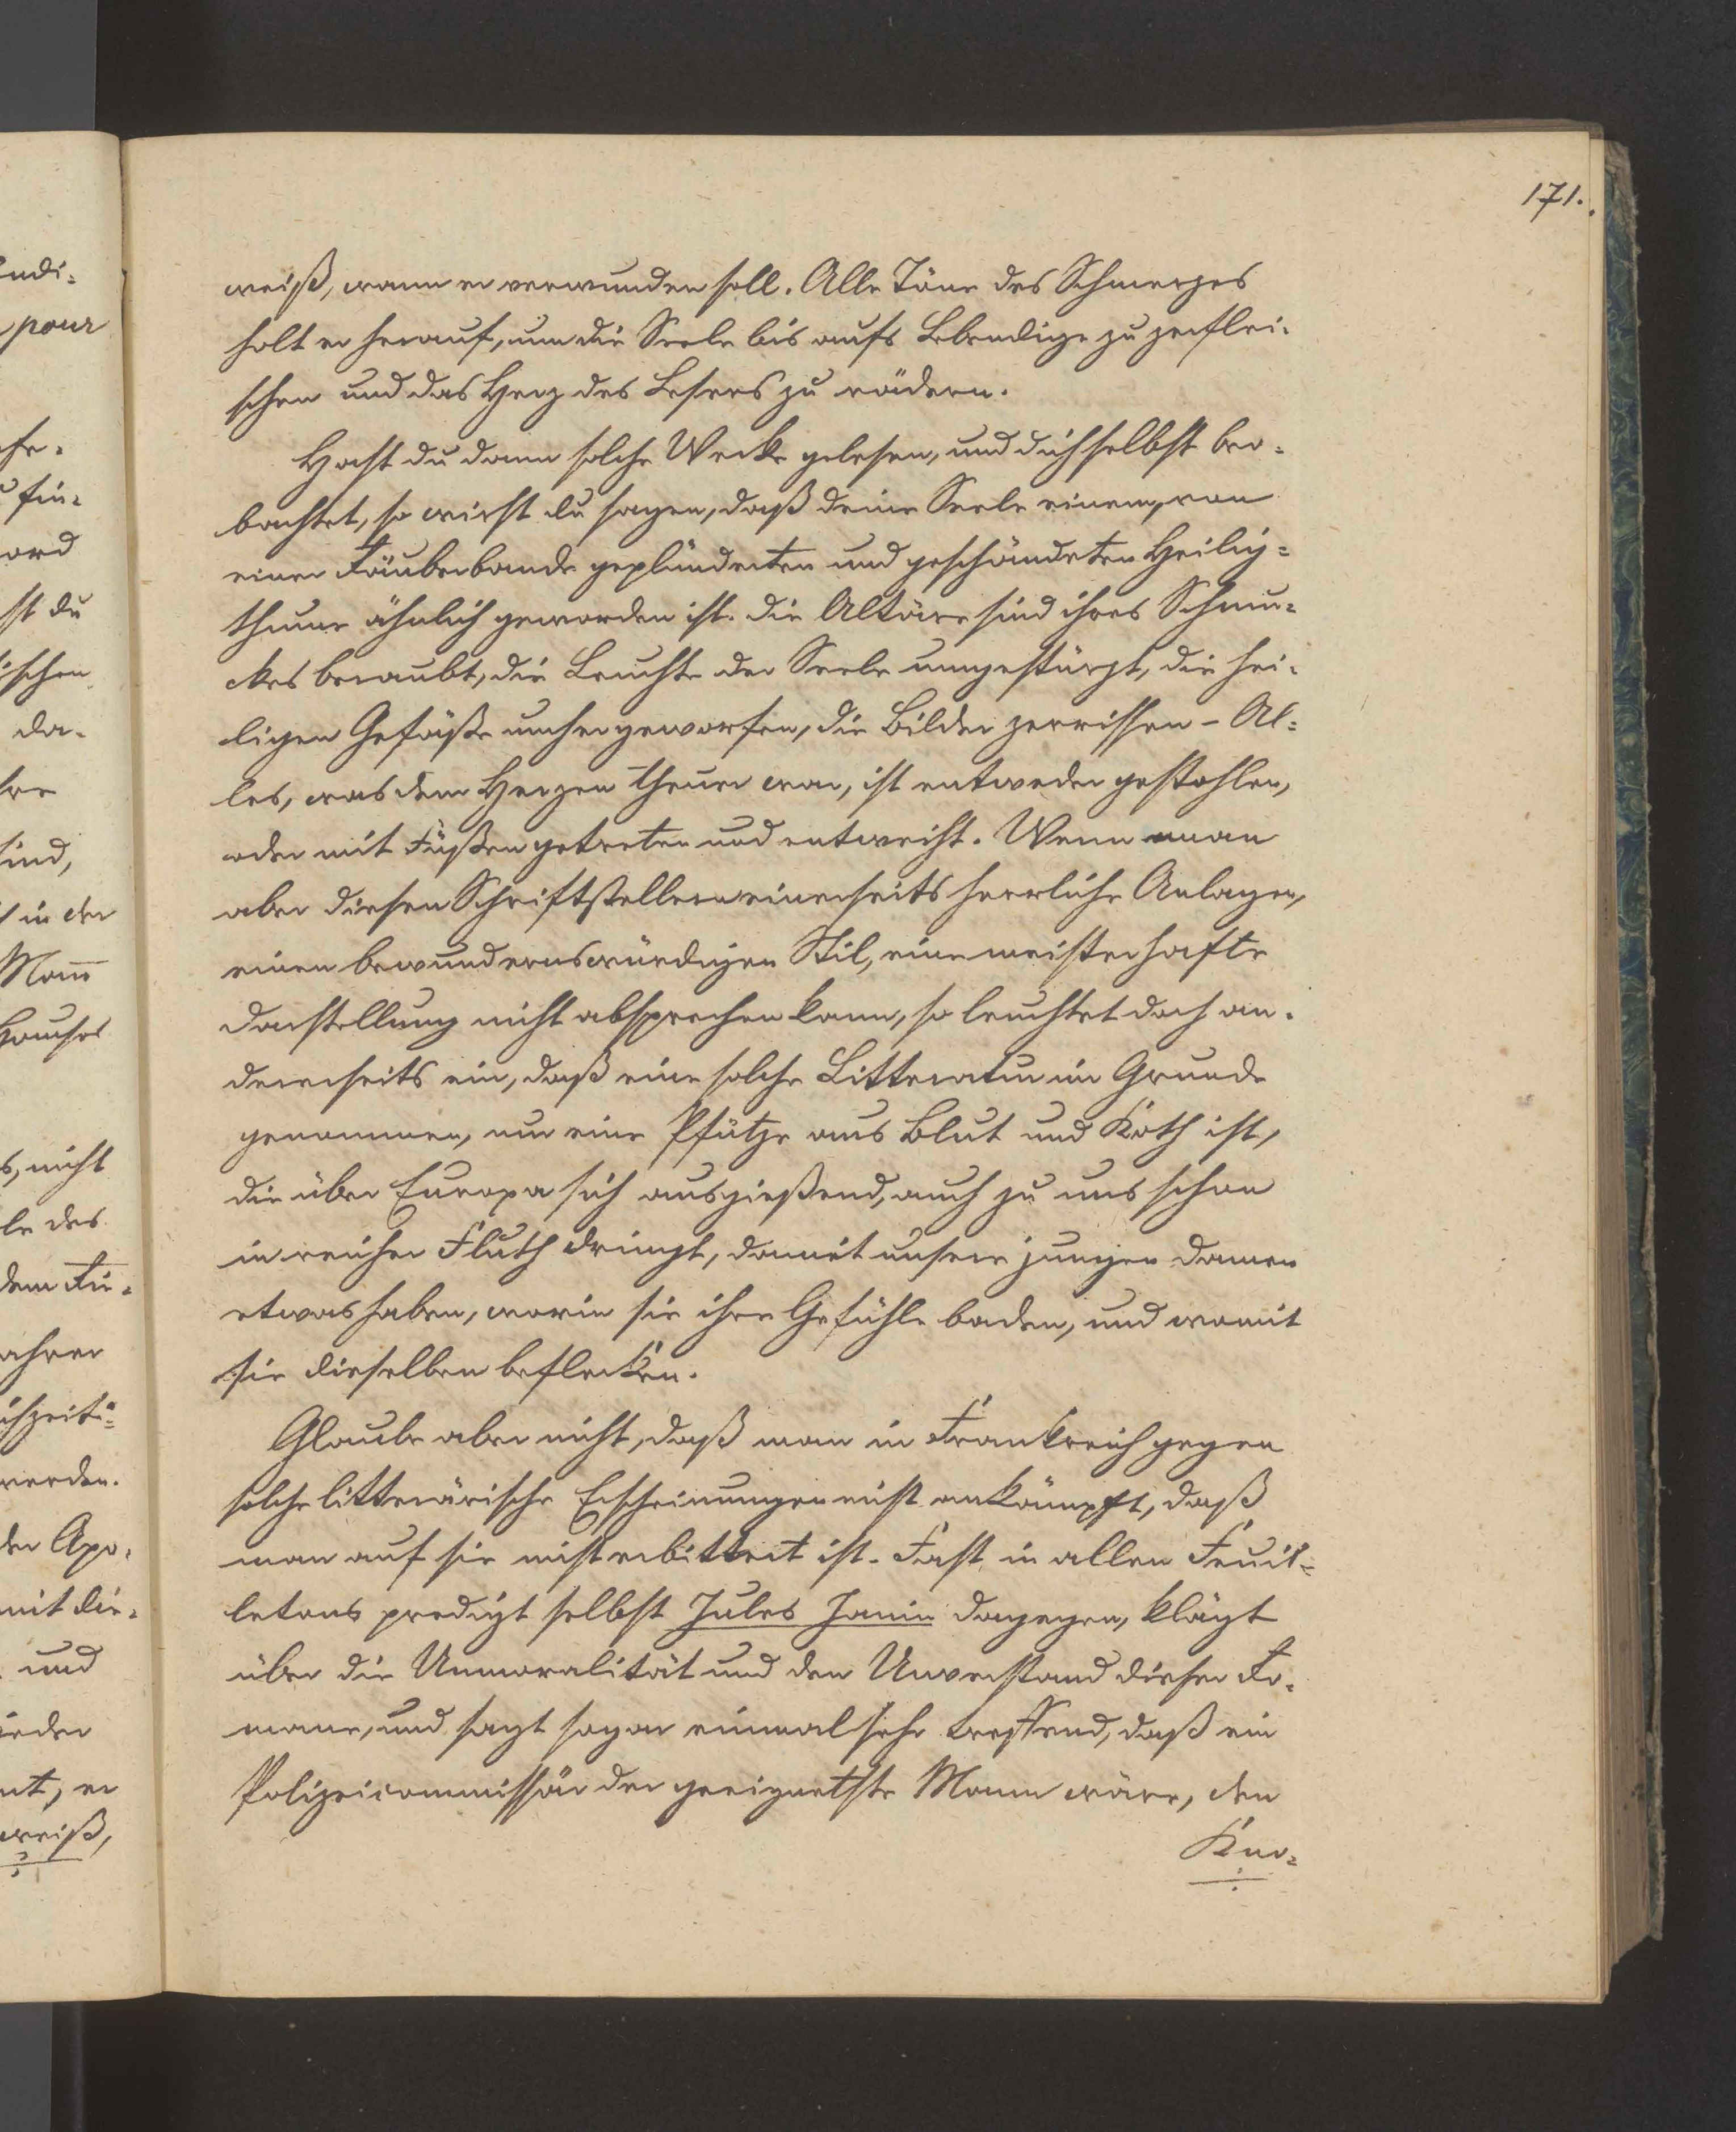 171.
weiß, wann er verwunden soll. Alle Töne des Schmerzes
holt er herauf, um die Seele bis aufs Lebendige zu zerflei-
schen und das Herz des Lesers zu rädern.
Hast du dann solche Werke gelesen, und dich selbst beo-
bachtet, so wirst du sagen, daß deine Seele einem, von
einer Räuberbande geplünderten und geschändeten Heilig-
thume ähnlich geworden ist. Die Altäre sind ihres Schmu-
ckes beraubt, die Leuchte der Seele umgestürzt, die hei-
ligen Gefäße umhergeworfen, die Bilder zerrissen - Al-
les, was dem Herzen theuer war, ist entweder gestohlen,
oder mit Füßen getreten und entweiht. Wenn man
aber diesen Schriftstellern einerseits herrliche Anlagen,
einen bewundernswürdigen Stil, eine meisterhafte
Darstellung nicht absprechen kann, so leuchtet doch an-
dererseits ein, daß eine solche Litteratur im Grunde
genommen, nur eine Pfütze aus Blut und Koth ist,
die über Europa sich ausgießend, auch zu uns schon
in reicher Fluth dringt, damit unsere jungen Damen
etwas haben, worin sie ihre Gefühle baden, und womit
sie dieselben beflecken.
Glaube aber nicht, daß man in Frankreich gegen
solche litterärische Erscheinungen nicht ankämpft, daß
man auf sie nicht erbittert ist. Fast in allen Feuil-
letons predigt selbst Jules Janin dagegen, klagt
über die Unmoralität und den Unverstand dieser Ro-
mane, und sagt sogar einmal sehr treffend, daß ein
Polizeicommissär der geeignetste Mann wäre, den
Kno-